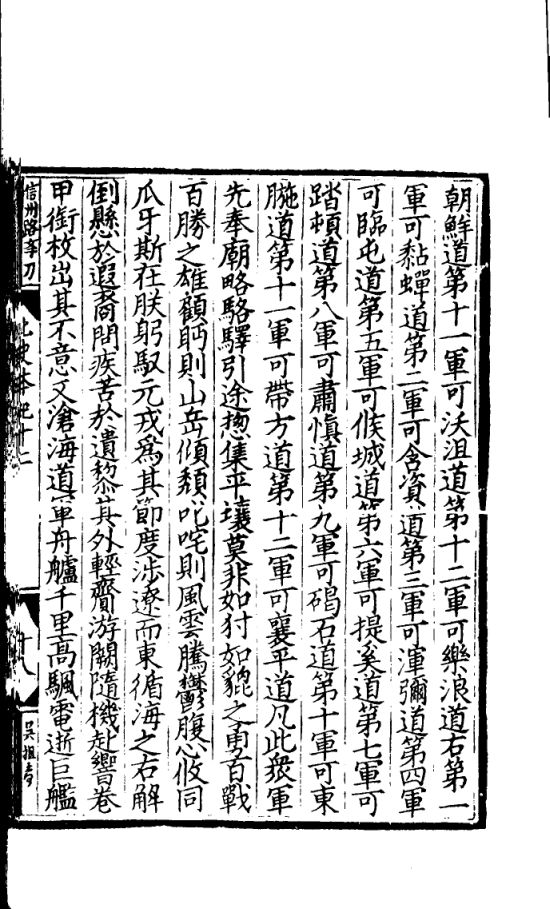 朝鮮道第十一軍可沃沮道第十二軍可樂浪道右第一
軍可黏蟬道第二軍可含資道第三軍可渾彌道第四軍
可臨屯道第五軍可候城道第六軍可提奚道第七軍可
踏頓道第八軍可肅慎道第九軍可碣石道第十軍可東
暆道第十一軍可帶方道第十二軍可襄平道凡此衆軍
先奉廟略駱驛引途惣集平壤莫非如犲如貔之勇百戰
百勝之雄顧眄則山岳傾頹叱咤則風雲騰鬱腹心攸同
爪牙斯在朕躬馭元戎爲其節度涉遼而東循海之右解
倒懸於遐裔問疾苦於遺黎其外輕齎游闕隨機赴響卷
甲銜枚出其不意又滄海道軍舟艫千里高颿電逝巨艦
信州路李刀
北史本紀十二
十八
吳祖